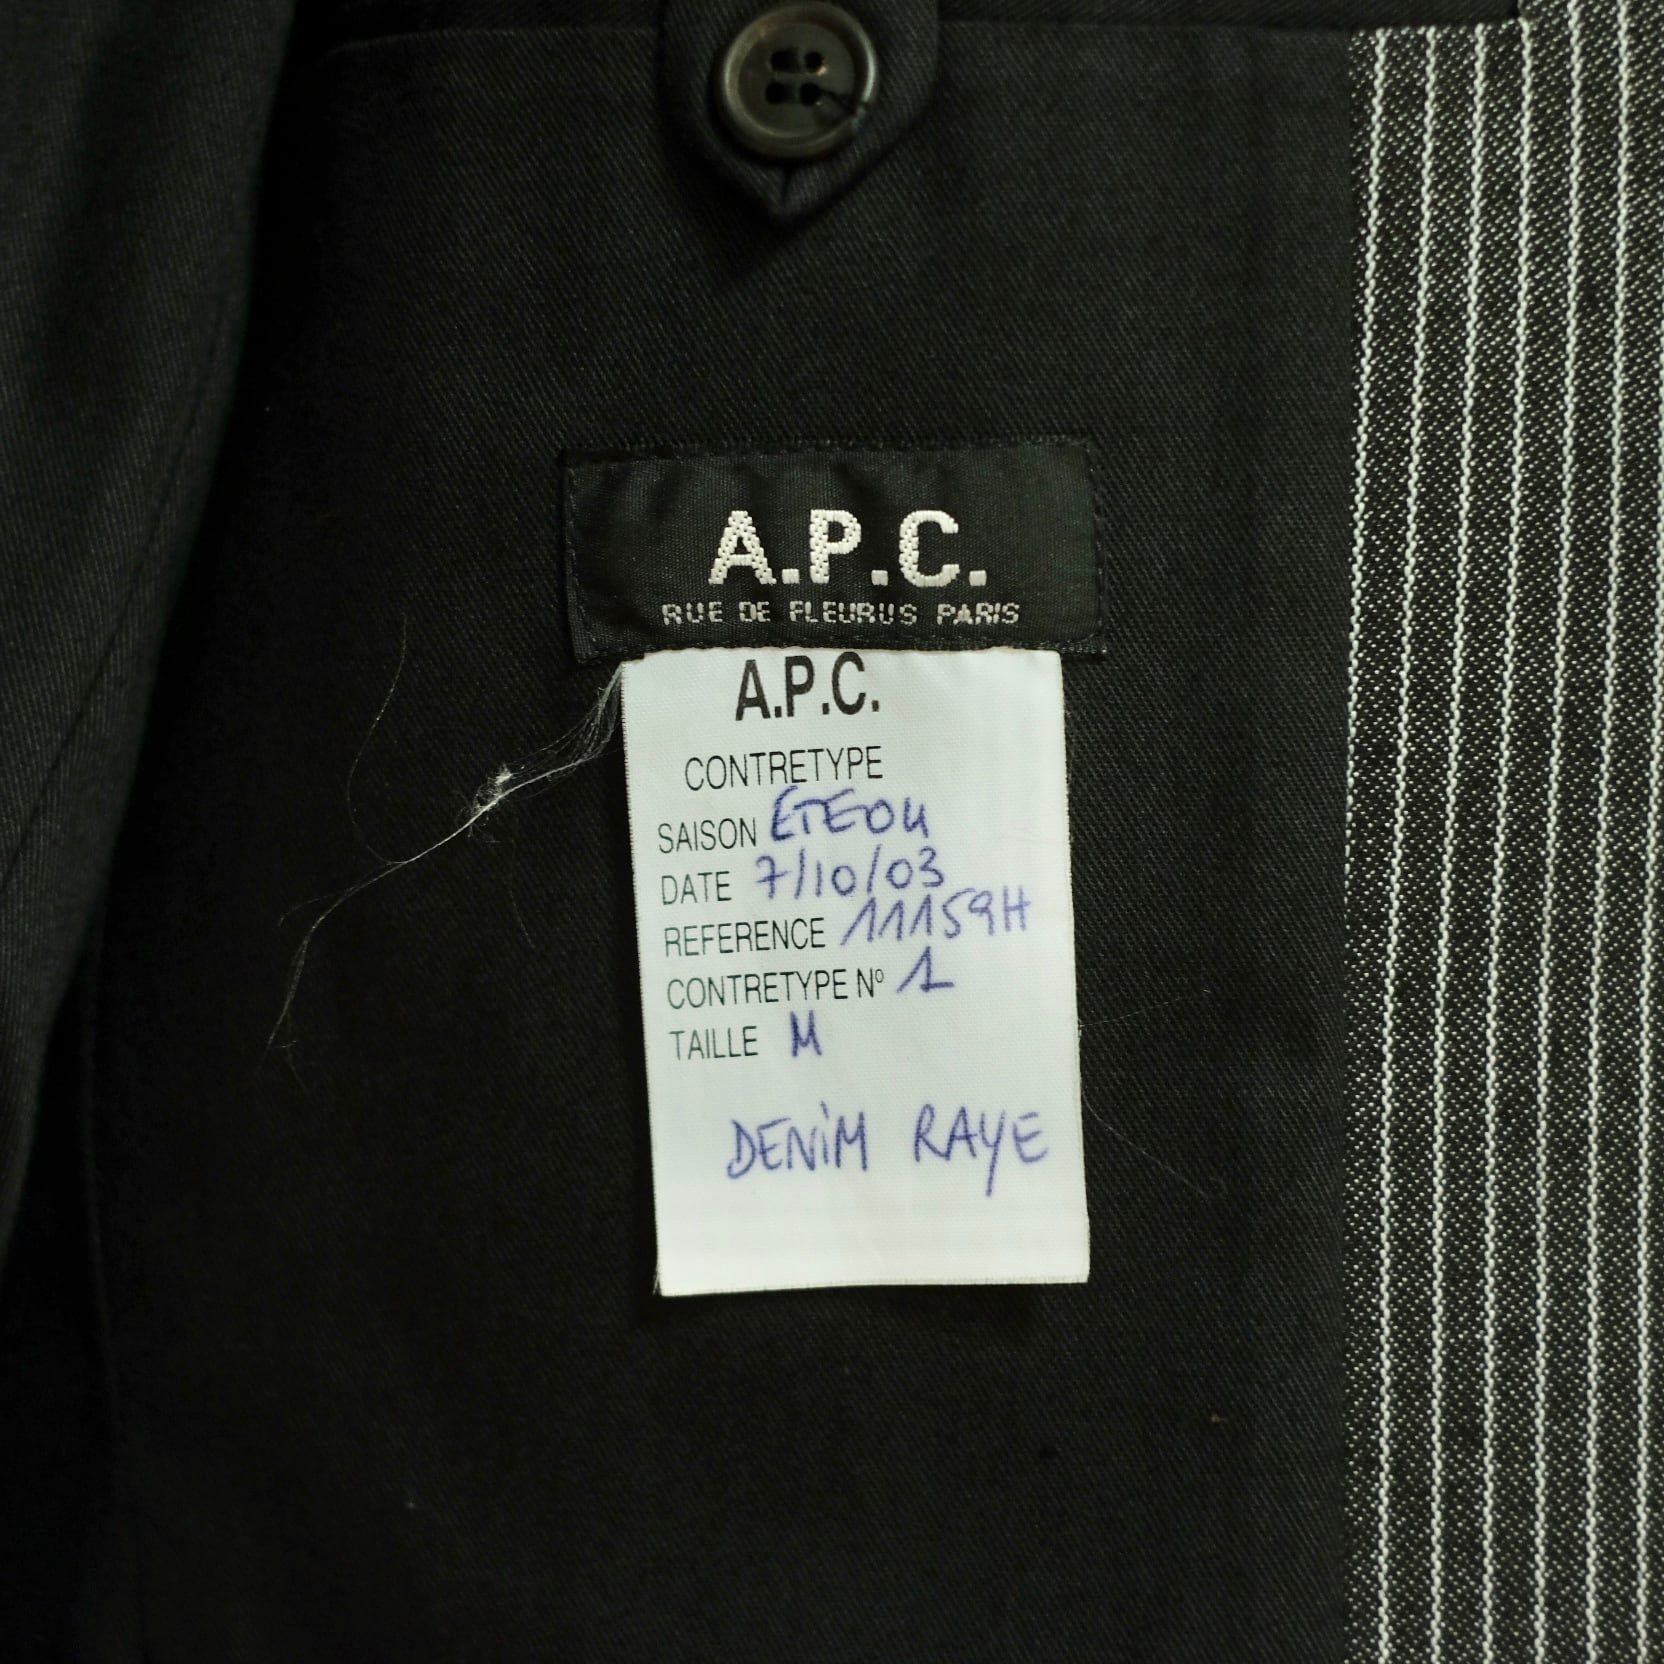 A.P.C.
RUE DE FLEURUS PARIS
A.P.C.
CONTRETYPE
SAISON ETE04
DATE 7/10/03
REFERENCE 11159H
CONTRETYPE Nº 1
TAILLE M
DENiM RAYE